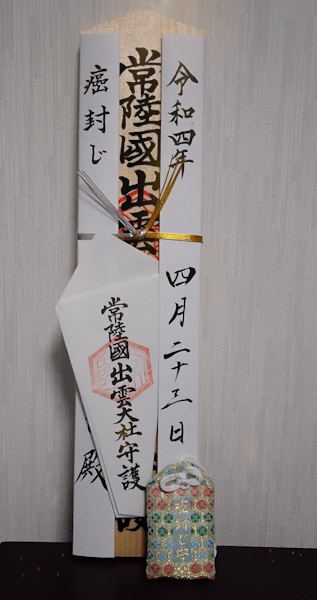 令和四年
四月二十三日
常陸國出雲
癌封じ
殿
常陸國出雲大社守護
癌封じ守